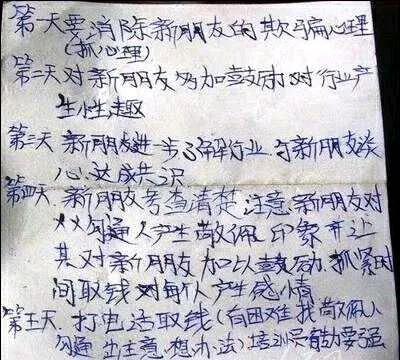 第一天要消除新朋友的欺骗心理
(抓心理)
第二天对新朋友多加鼓励对行业产
生兴趣
第三天 新朋友进一步了解行业 与新朋友谈
心 达成共识
第四天 新朋友考查清楚 注意新朋友对
沟通人产生敬佩 印象 并让
其对新朋友加以鼓励 抓紧时
间取钱对每个人产生感情
第五天 打电话取钱(有困难找敬佩人
沟通 出主意 想办法)培训员能力要强